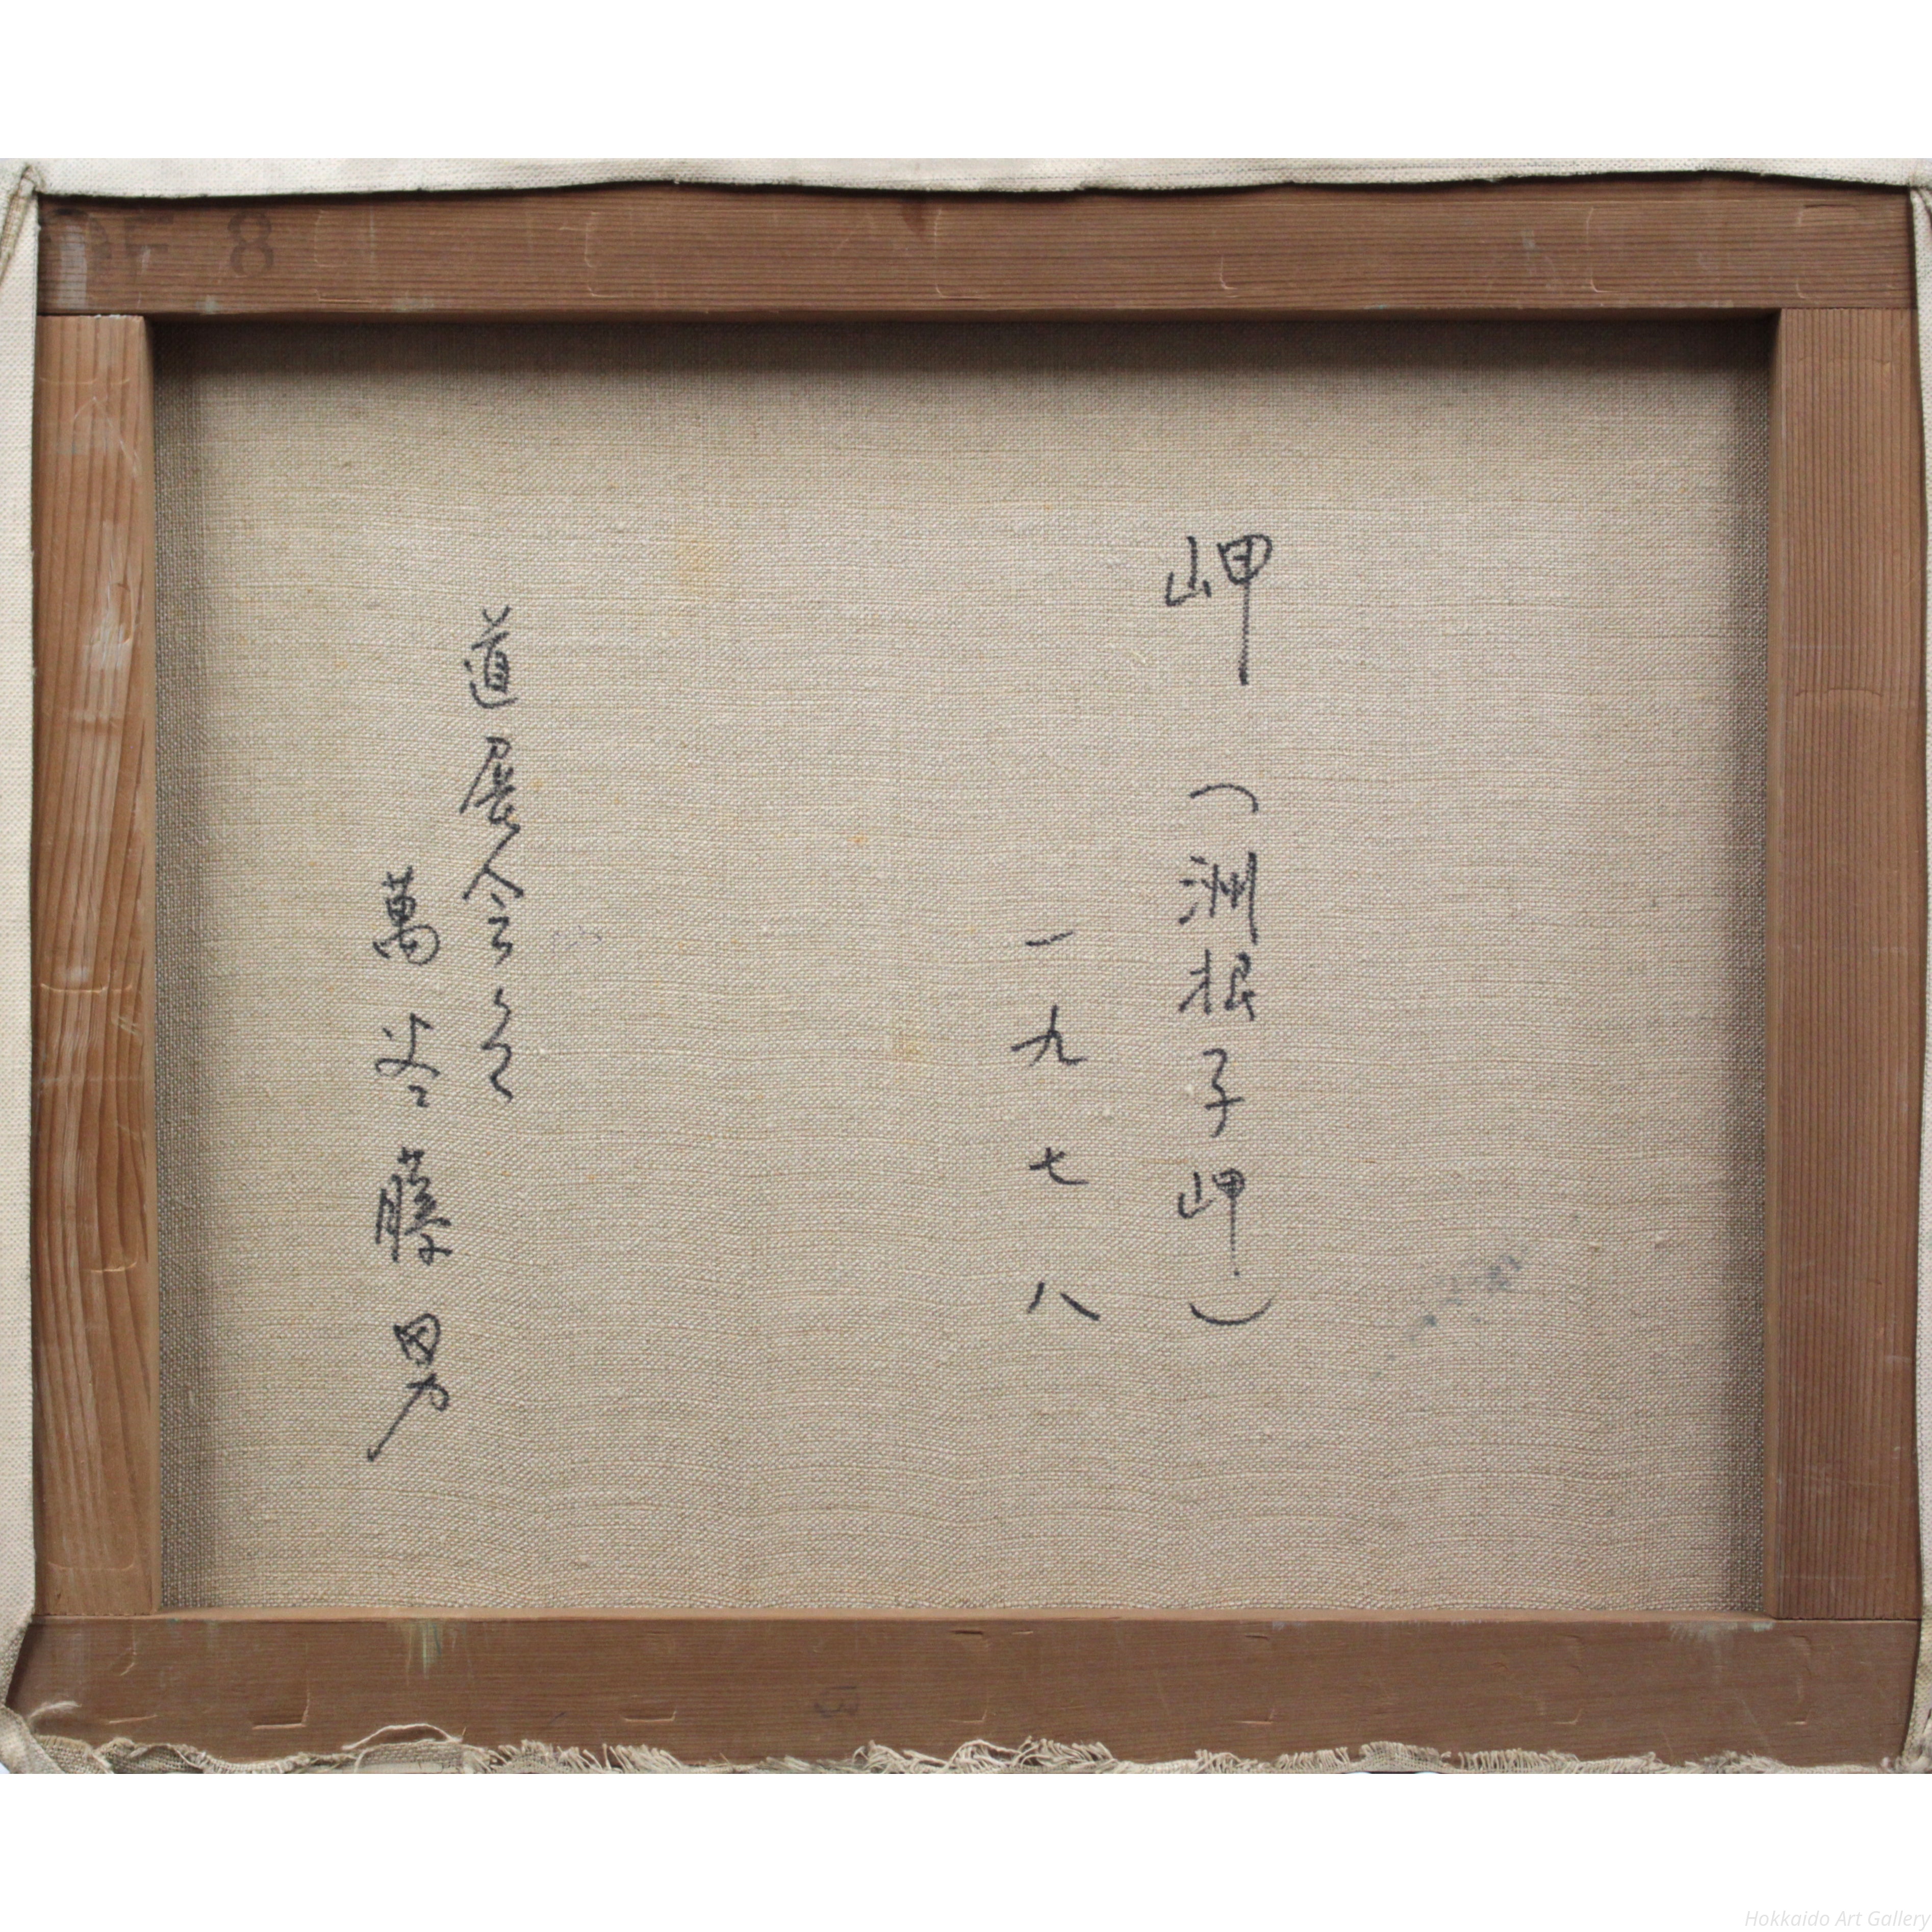 岬 (洲根子岬)
一九七八
道展会員
萬谷藤男
F 8
Hokkaido Art Gallery